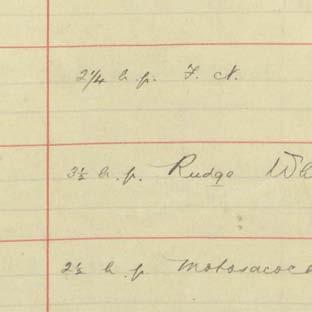 2¼ h.p. F. N.
3½ h.p. Rudge
2½ h.p. Motosacoc